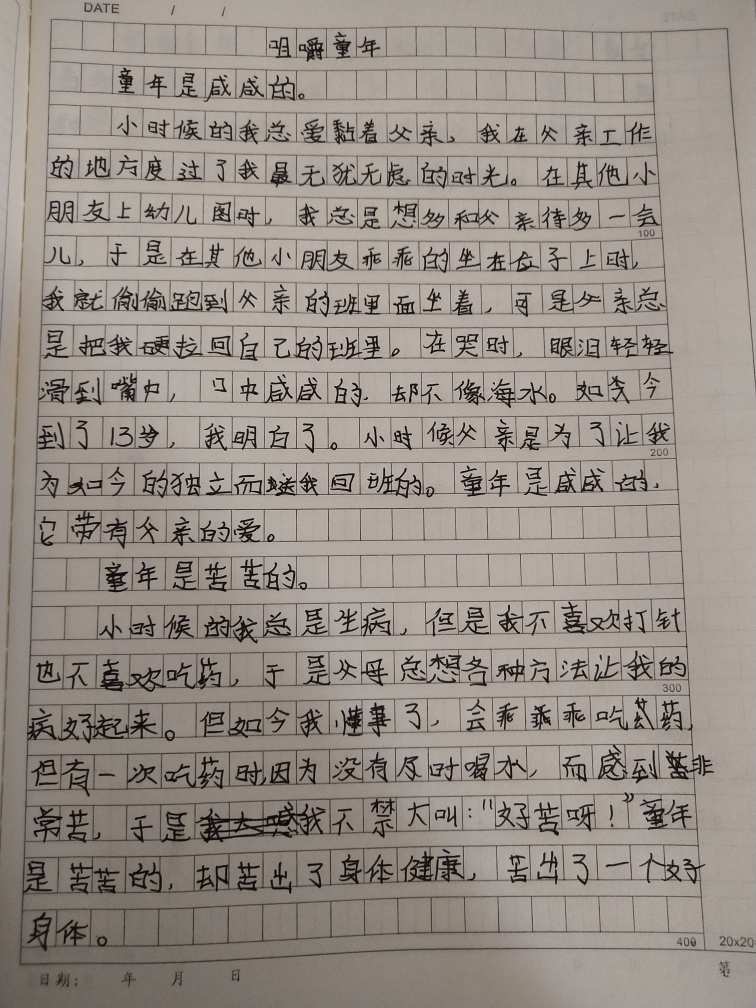 DATE / /
咀嚼童年
童年是咸咸的。
小时候的我总爱黏着父亲，我在父亲工作
的地方度过了我最无忧无虑的时光。在其他小
朋友上幼儿园时，我总是想多和父亲待多一会
100
儿，于是在其他小朋友乖乖的坐在位子上时，
我就偷偷跑到父亲的班里面坐着，可是父亲总
是把我硬拉回自己的班里。在哭时，眼泪轻轻
滑到嘴中，口中咸咸的，却不像海水。如今
到了13岁，我明白了。小时候父亲是为了让我
200
为如今的独立而送我回班的。童年是咸咸的，
它带有父亲的爱。
童年是苦苦的。
小时候的我总是生病，但是我不喜欢打针
也不喜欢吃药，于是父母总想各种方法让我的
300
病好起来。但如今我懂事了，会乖乖乖吃药，
但有一次吃药时因为没有及时喝水，而感到非
常苦，于是我不禁大叫："好苦呀！"童年
是苦苦的，却苦出了身体健康，苦出了一个好
身体。
400 20x20
日期： 年 月 日 第